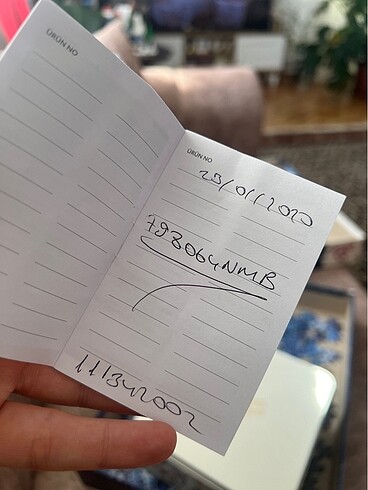 ÜRÜN NO
ÜRÜN NO
25/01/2020
793064NMB
11342002